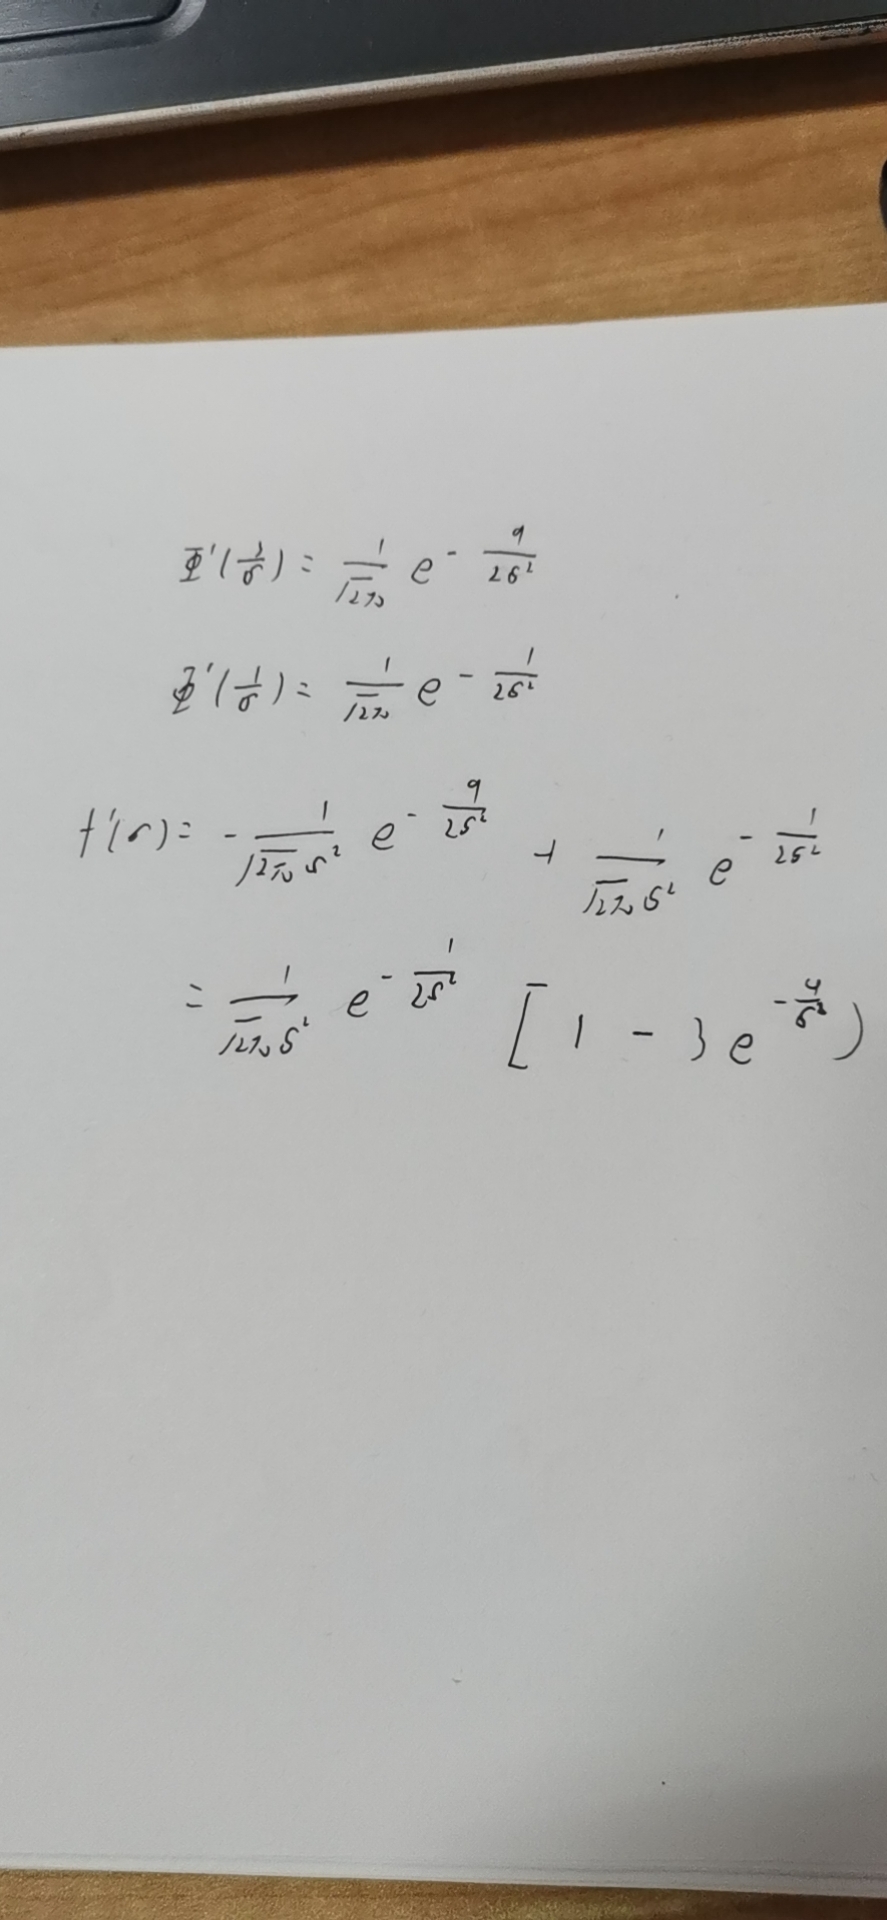 Φ'(3/σ) = 1/√2π e^(-9/2σ²)
Φ'(1/σ) = 1/√2π e^(-1/2σ²)
f'(σ) = - 1/√2π σ² e^(-9/2σ²) + 1/√2π σ² e^(-1/2σ²)
= 1/√2π σ² e^(-1/2σ²) [1 - 3e^(-4/σ²))